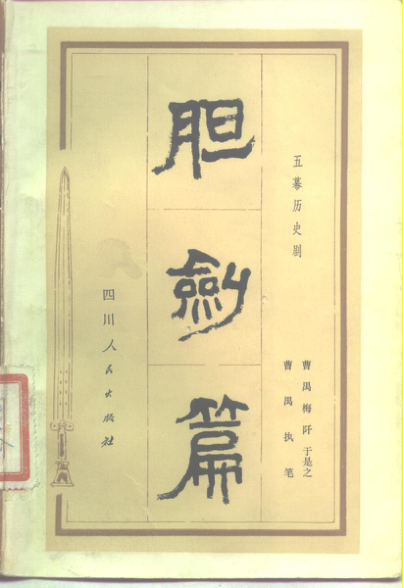 五幕历史剧
胆剑篇
曹禺 梅阡 于是之
曹禺 执笔
四川人民出版社